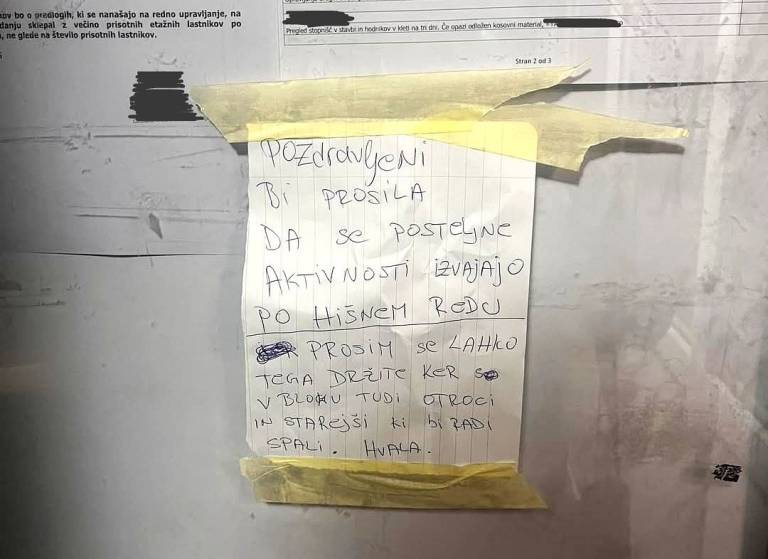 ov bo o predlogih, ki se nanašajo na redno upravljanje, na
danju sklepal z večino prisotnih etažnih lastnikov po
, ne glede na število prisotnih lastnikov.
Pregled stopnišč v stavbi in hodnikov v kleti na tri dni. Če opazi odložen kosovni material,
Stran 2 od 3
POZdravljeni
BI PROSILA
DA se POSTELJNE
AKTIVNOSTI IZVAJAJO
PO HIŠNEM REDU
PROSIM se LAHKO
TEGA DRŽITE KER SO
V BLOKU TUDI OTROCI
IN STAREJŠI ki bi RADI
SPALI. HVALA.